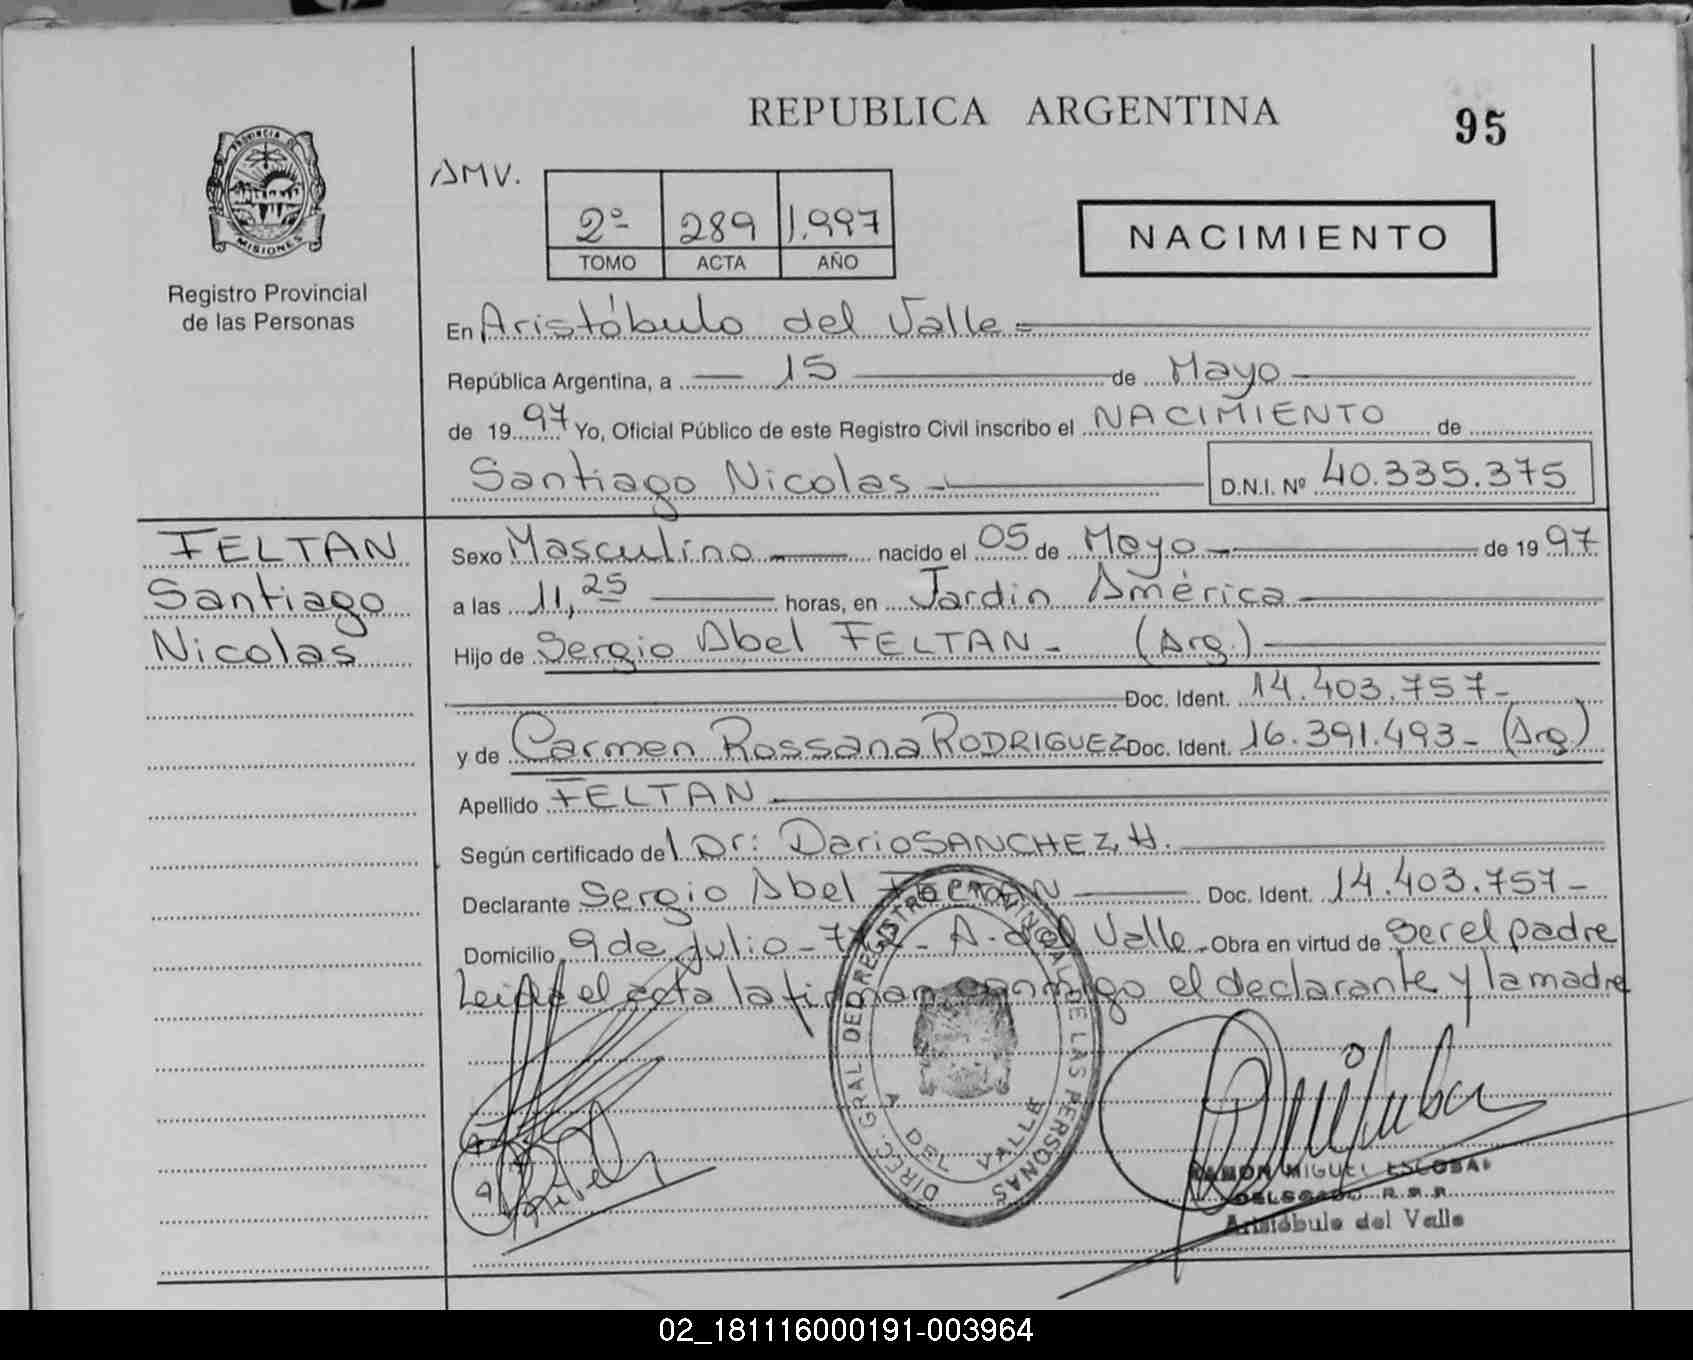 REPUBLICA ARGENTINA
95
PROVINCIA DE
MISIONES
Registro Provincial
de las Personas
AMV.
2º 289 1.997
TOMO ACTA AÑO
NACIMIENTO
En Aristóbulo del Valle
República Argentina, a 15 de Mayo
de 1997 Yo, Oficial Público de este Registro Civil inscribo el NACIMIENTO de
Santiago Nicolas D.N.I. Nº 40.335.375
FELTAN
Santiago
Nicolas
Sexo Masculino nacido el 05 de Mayo de 1997
a las 11,25 horas, en Jardin América
Hijo de Sergio Abel FELTAN - (Arg.)
Doc. Ident. 14.403.757-
y de Carmen Rossana RODRIGUEZ Doc. Ident. 16.391.493- (Arg)
Apellido FELTAN
Según certificado del Dr: Dario SANCHEZ, H.
Declarante Sergio Abel FELTAN Doc. Ident. 14.403.757-
Domicilio 9 de Julio - A. del Valle - Obra en virtud de Ser el padre
Leida el acta la firman conmigo el declarante y la madre
DIREC. GRAL DEL REGISTRO PROVINCIAL DE LAS PERSONAS
A DEL VALLE
RAMON MIGUEL ESCOBAR
DELEGADO R.P.P.
Aristóbulo del Valle
02_181116000191-003964